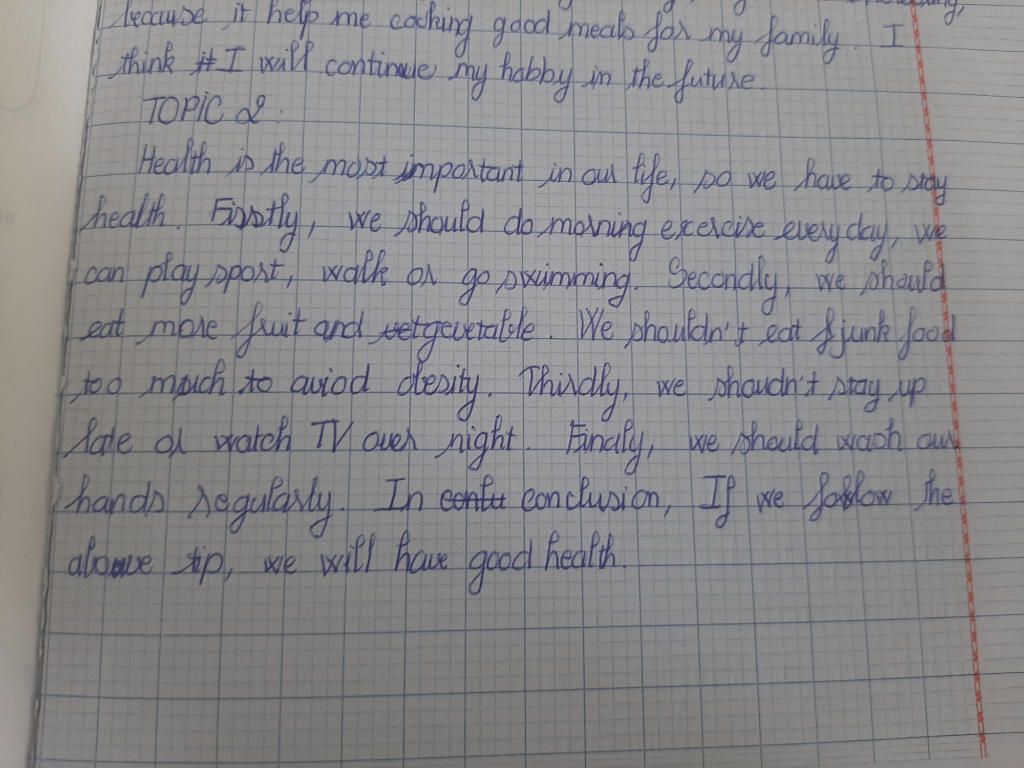 because it help me cooking good meals for my family. I
think I will continue my hobby in the future.
TOPIC 2:
Health is the most important in our life, so we have to stay
health. Firstly, we should do morning exercise everyday, we
can play sport, walk or go swimming. Secondly, we should
eat more fruit and gevetable. We shouldn't eat junk food
too much to aviod obesity. Thirdly, we shoudn't stay up
late or watch TV over night. Finaly, we should wash our
hands regularly. In conclusion, If we follow the
above tip, we will have good health.